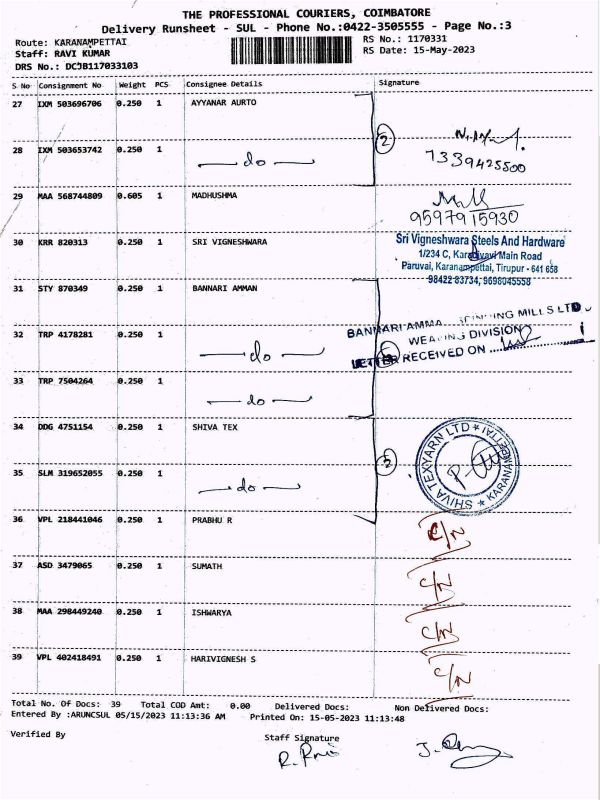 THE PROFESSIONAL COURIERS, COIMBATORE
Delivery Runsheet - SUL - Phone No.:0422-3505555 - Page No.:3
Route: KARANAMPETTAI RS No.: 1170331
Staff: RAVI KUMAR RS Date: 15-May-2023
DRS No.: DCJB117033103
S No Consignment No Weight PCS Consignee Details Signature
27 IXM 503696706 0.250 1 AYYANAR AURTO
28 IXM 503653742 0.250 1 do 2 7339425500
29 MAA 568744809 0.605 1 MADHUSHMA 9597915930
30 KRR 820313 0.250 1 SRI VIGNESHWARA
Sri Vigneshwara Steels And Hardware
1/234 C, Karadivavi Main Road
Paruvai, Karanampettai, Tirupur - 641 658
98422 83734, 9698045558
31 STY 870349 0.250 1 BANNARI AMMAN
BANNARI AMMA SPINNING MILLS LTD
WEAVING DIVISION
LETTER RECEIVED ON
32 TRP 4178281 0.250 1 do
33 TRP 7504264 0.250 1 do
34 DDG 4751154 0.250 1 SHIVA TEX
SHIVA TEXYARN LTD ★ KARANAMPETTAI ★
35 SLM 319652055 0.250 1 do
36 VPL 218441046 0.250 1 PRABHU R C/N
37 ASD 3479065 0.250 1 SUMATH C/N
38 MAA 298449240 0.250 1 ISHWARYA C/N
39 VPL 402418491 0.250 1 HARIVIGNESH S C/N
Total No. Of Docs: 39 Total COD Amt: 0.00 Delivered Docs: Non Delivered Docs:
Entered By :ARUNCSUL 05/15/2023 11:13:36 AM Printed On: 15-05-2023 11:13:48
Verified By Staff Signature